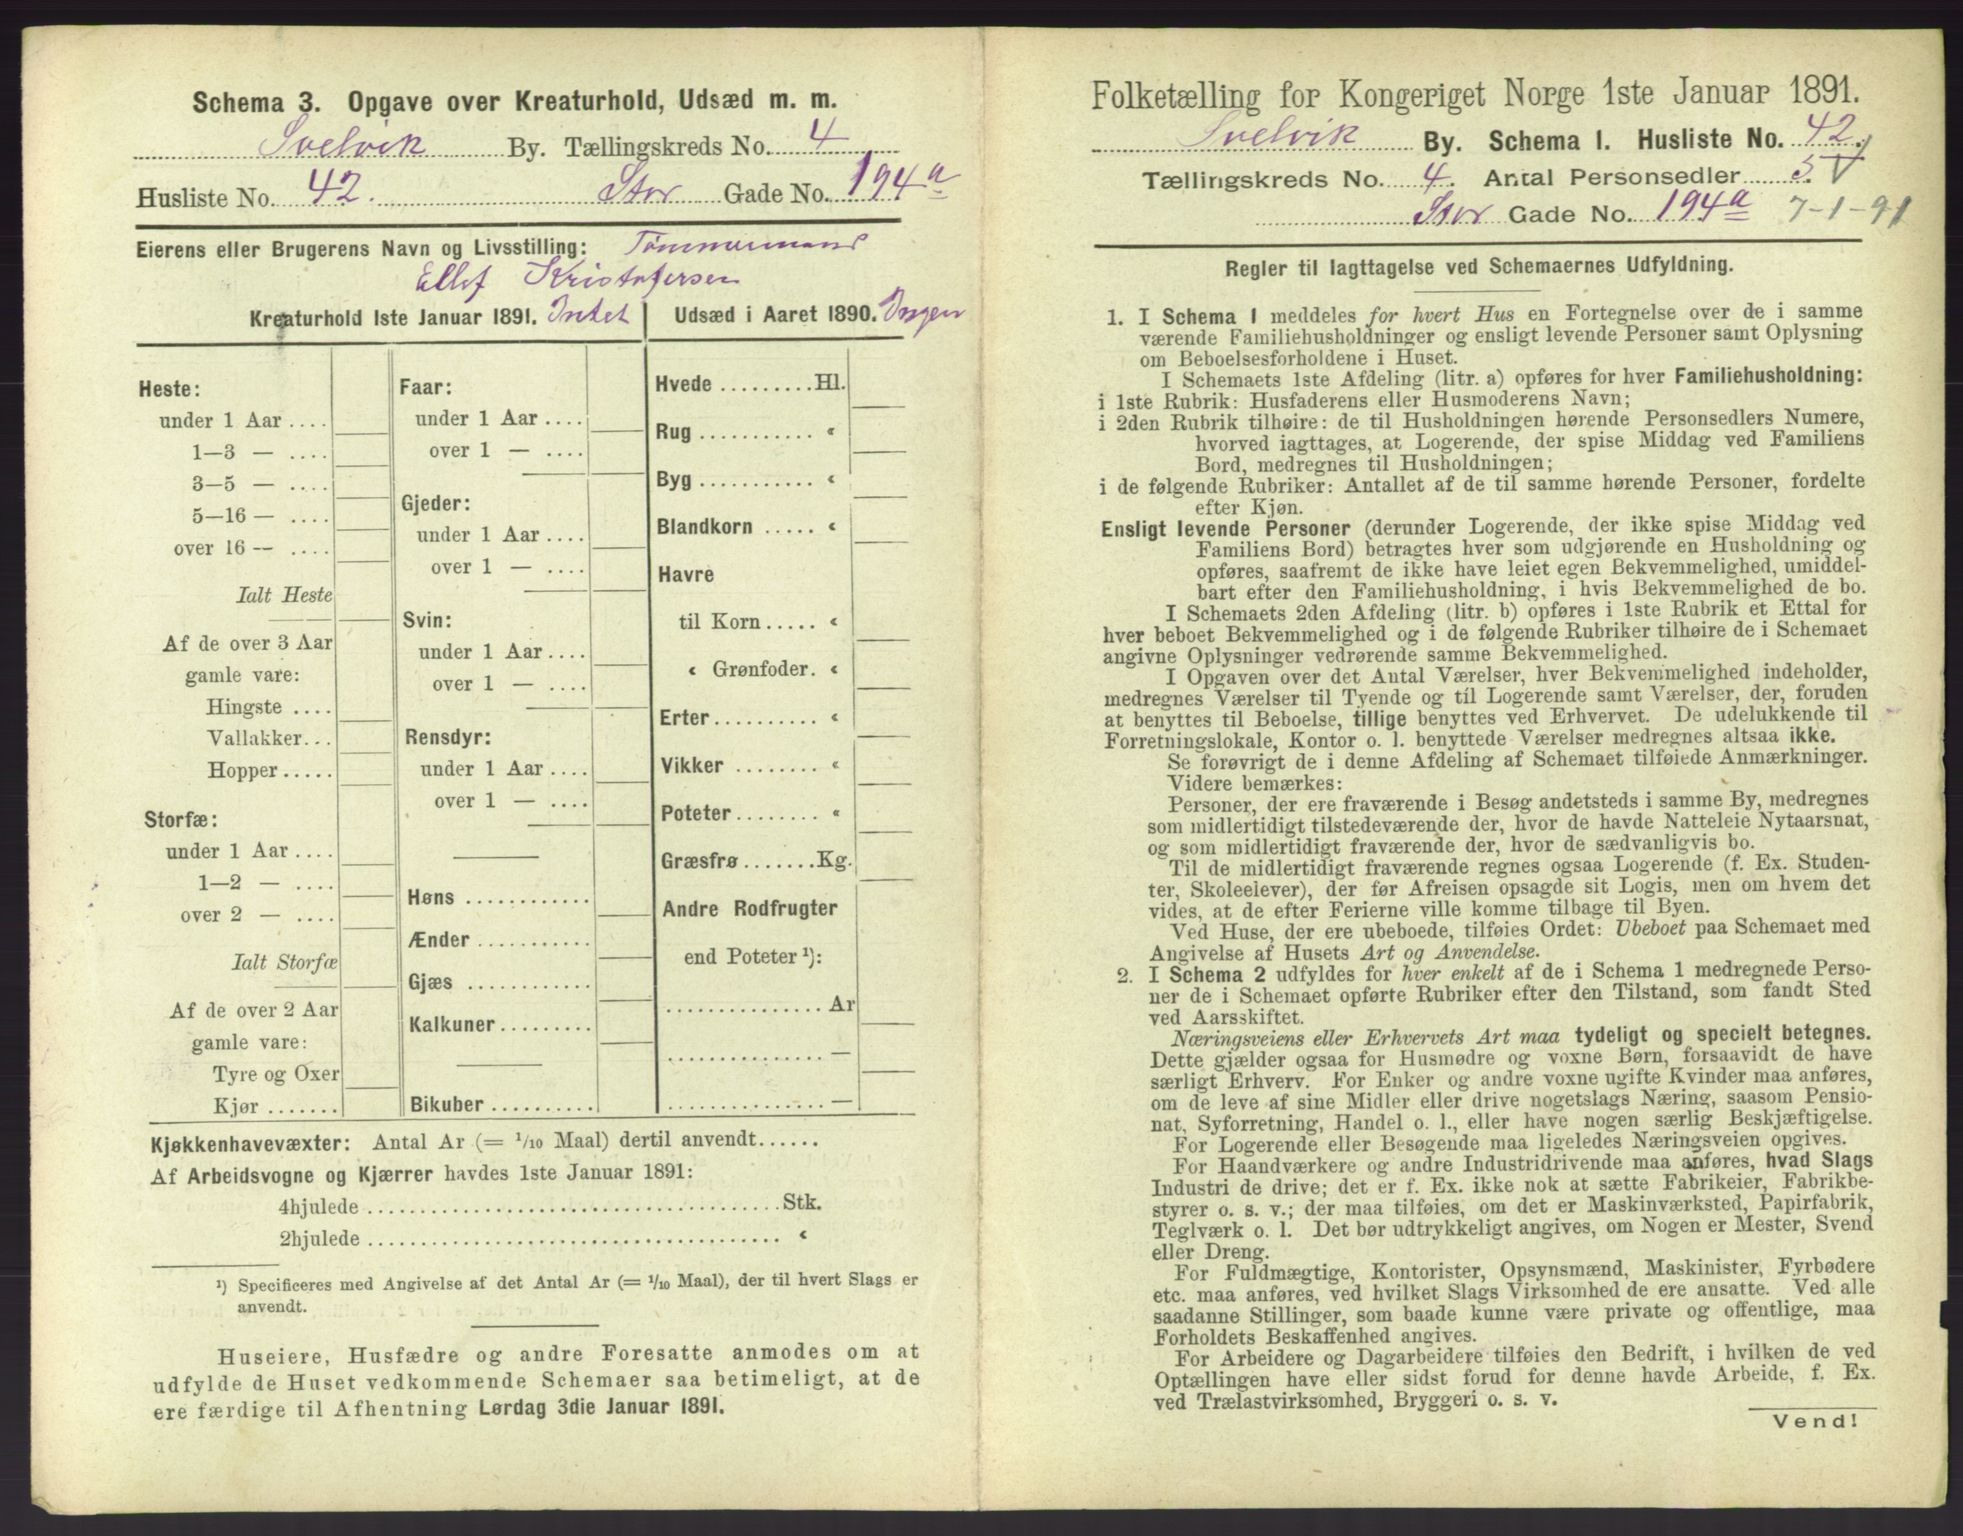 Schema 3. Opgave over Kreaturhold, Udsæd m. m.
Svelvik By. Tællingskreds No. 4
Husliste No. 42. Stor Gade No. 194a
Eierens eller Brugerens Navn og Livsstilling: Tømmermand
Ellef Kristofersen
Kreaturhold 1ste Januar 1891. Intet
Heste:
under 1 Aar ....
1—3 — ....
3—5 — ....
5—16 — ....
over 16 — ....
Ialt Heste
Af de over 3 Aar
gamle vare:
Hingste ....
Vallakker...
Hopper.....
Storfæ:
under 1 Aar ....
1—2 — ....
over 2 — ....
Ialt Storfæ
Af de over 2 Aar
gamle vare:
Tyre og Oxer
Kjør .......
Faar:
under 1 Aar ....
over 1 — ....
Gjeder:
under 1 Aar ....
over 1 — ....
Svin:
under 1 Aar ....
over 1 — ....
Rensdyr:
under 1 Aar ....
over 1 — ....
Høns ............
Ænder ...........
Gjæs ............
Kalkuner.........
Bikuber ..........
Udsæd i Aaret 1890. Ingen
Hvede .........Hl.
Rug ........... «
Byg ........... «
Blandkorn ..... «
Havre
til Korn ..... «
« Grønfoder. «
Erter.......... «
Vikker ........ «
Poteter........ «
Græsfrø .......Kg.
Andre Rodfrugter
end Poteter ¹):
............... Ar
............... —
............... —
Kjøkkenhavevæxter: Antal Ar (= 1/10 Maal) dertil anvendt......
Af Arbeidsvogne og Kjærrer havdes 1ste Januar 1891:
4hjulede ........................................Stk.
2hjulede ........................................ «
¹) Specificeres med Angivelse af det Antal Ar (= 1/10 Maal), der til hvert Slags er
anvendt.
Huseiere, Husfædre og andre Foresatte anmodes om at
udfylde de Huset vedkommende Schemaer saa betimeligt, at de
ere færdige til Afhentning Lørdag 3die Januar 1891.
Folketælling for Kongeriget Norge 1ste Januar 1891.
Svelvik By. Schema I. Husliste No. 42.
Tællingskreds No. 4. Antal Personsedler 5. V
Stor Gade No. 194a 7-1-91
Regler til Iagttagelse ved Schemaernes Udfyldning.
1. I Schema 1 meddeles for hvert Hus en Fortegnelse over de i samme
værende Familiehusholdninger og ensligt levende Personer samt Oplysning
om Beboelsesforholdene i Huset.
I Schemaets 1ste Afdeling (litr. a) opføres for hver Familiehusholdning:
i 1ste Rubrik: Husfaderens eller Husmoderens Navn;
i 2den Rubrik tilhøire: de til Husholdningen hørende Personsedlers Numere,
hvorved iagttages, at Logerende, der spise Middag ved Familiens
Bord, medregnes til Husholdningen;
i de følgende Rubriker: Antallet af de til samme hørende Personer, fordelte
efter Kjøn.
Ensligt levende Personer (derunder Logerende, der ikke spise Middag ved
Familiens Bord) betragtes hver som udgjørende en Husholdning og
opføres, saafremt de ikke have leiet egen Bekvemmelighed, umiddel-
bart efter den Familiehusholdning, i hvis Bekvemmelighed de bo.
I Schemaets 2den Afdeling (litr. b) opføres i 1ste Rubrik et Ettal for
hver beboet Bekvemmelighed og i de følgende Rubriker tilhøire de i Schemaet
angivne Oplysninger vedrørende samme Bekvemmelighed.
I Opgaven over det Antal Værelser, hver Bekvemmelighed indeholder,
medregnes Værelser til Tyende og til Logerende samt Værelser, der, foruden
at benyttes til Beboelse, tillige benyttes ved Erhvervet. De udelukkende til
Forretningslokale, Kontor o. l. benyttede Værelser medregnes altsaa ikke.
Se forøvrigt de i denne Afdeling af Schemaet tilføiede Anmærkninger.
Videre bemærkes:
Personer, der ere fraværende i Besøg andetsteds i samme By, medregnes
som midlertidigt tilstedeværende der, hvor de havde Natteleie Nytaarsnat,
og som midlertidigt fraværende der, hvor de sædvanligvis bo.
Til de midlertidigt fraværende regnes ogsaa Logerende (f. Ex. Studen-
ter, Skoleelever), der før Afreisen opsagde sit Logis, men om hvem det
vides, at de efter Ferierne ville komme tilbage til Byen.
Ved Huse, der ere ubeboede, tilføies Ordet: Ubeboet paa Schemaet med
Angivelse af Husets Art og Anvendelse.
2. I Schema 2 udfyldes for hver enkelt af de i Schema 1 medregnede Perso-
ner de i Schemaet opførte Rubriker efter den Tilstand, som fandt Sted
ved Aarsskiftet.
Næringsveiens eller Erhvervets Art maa tydeligt og specielt betegnes.
Dette gjælder ogsaa for Husmødre og voxne Børn, forsaavidt de have
særligt Erhverv. For Enker og andre voxne ugifte Kvinder maa anføres,
om de leve af sine Midler eller drive nogetslags Næring, saasom Pensio-
nat, Syforretning, Handel o. l., eller have nogen særlig Beskjæftigelse.
For Logerende eller Besøgende maa ligeledes Næringsveien opgives.
For Haandværkere og andre Industridrivende maa anføres, hvad Slags
Industri de drive; det er f. Ex. ikke nok at sætte Fabrikeier, Fabrikbe-
styrer o. s. v.; der maa tilføies, om det er Maskinværksted, Papirfabrik,
Teglværk o. l. Det bør udtrykkeligt angives, om Nogen er Mester, Svend
eller Dreng.
For Fuldmægtige, Kontorister, Opsynsmænd, Maskinister, Fyrbødere
etc. maa anføres, ved hvilket Slags Virksomhed de ere ansatte. Ved alle
saadanne Stillinger, som baade kunne være private og offentlige, maa
Forholdets Beskaffenhed angives.
For Arbeidere og Dagarbeidere tilføies den Bedrift, i hvilken de ved
Optællingen have eller sidst forud for denne havde Arbeide, f. Ex.
ved Trælastvirksomhed, Bryggeri o. s. v.
Vend!